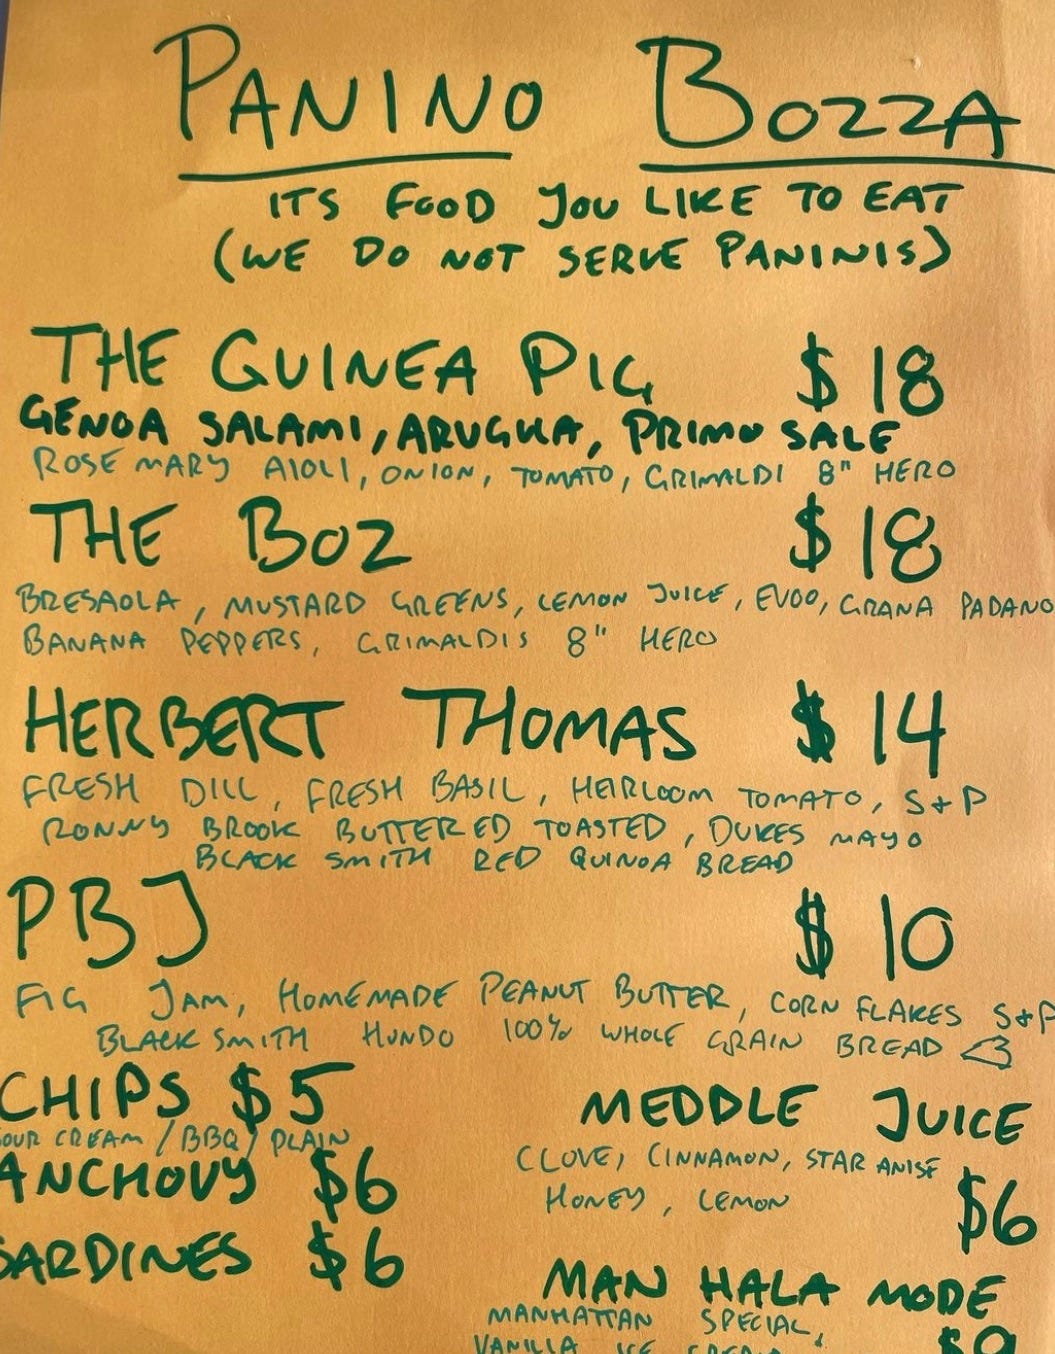 PANINO BOZZA
ITS FOOD YOU LIKE TO EAT
(WE DO NOT SERVE PANINIS)
THE GUINEA PIG $18
GENOA SALAMI, ARUGULA, PRIMO SALE
ROSE MARY AIOLI, ONION, TOMATO, GRIMALDI 8" HERO
THE BOZ $18
BRESAOLA, MUSTARD GREENS, LEMON JUICE, EVOO, GRANA PADANO
BANANA PEPPERS, GRIMALDIS 8" HERO
HERBERT THOMAS $14
FRESH DILL, FRESH BASIL, HEIRLOOM TOMATO, S+P
RONNY BROOK BUTTERED TOASTED, DUKES MAYO
BLACK SMITH RED QUINOA BREAD
PBJ $10
FIG JAM, HOMEMADE PEANUT BUTTER, CORN FLAKES S+P
BLACK SMITH HUNDO 100% WHOLE GRAIN BREAD <3
CHIPS $5
OUR CREAM / BBQ / PLAIN
ANCHOVY $6
SARDINES $6
MEDDLE JUICE
CLOVE, CINNAMON, STAR ANISE
HONEY, LEMON
$6
MAN HALA MODE
MANHATTAN SPECIAL,
VANILLA ICE CREAM